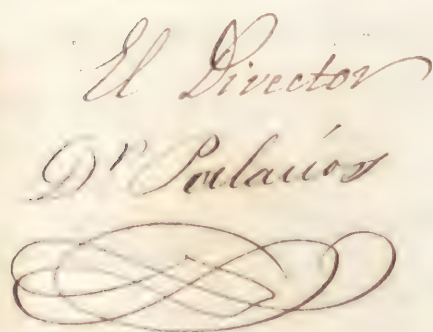 El Director
Dr Palacios